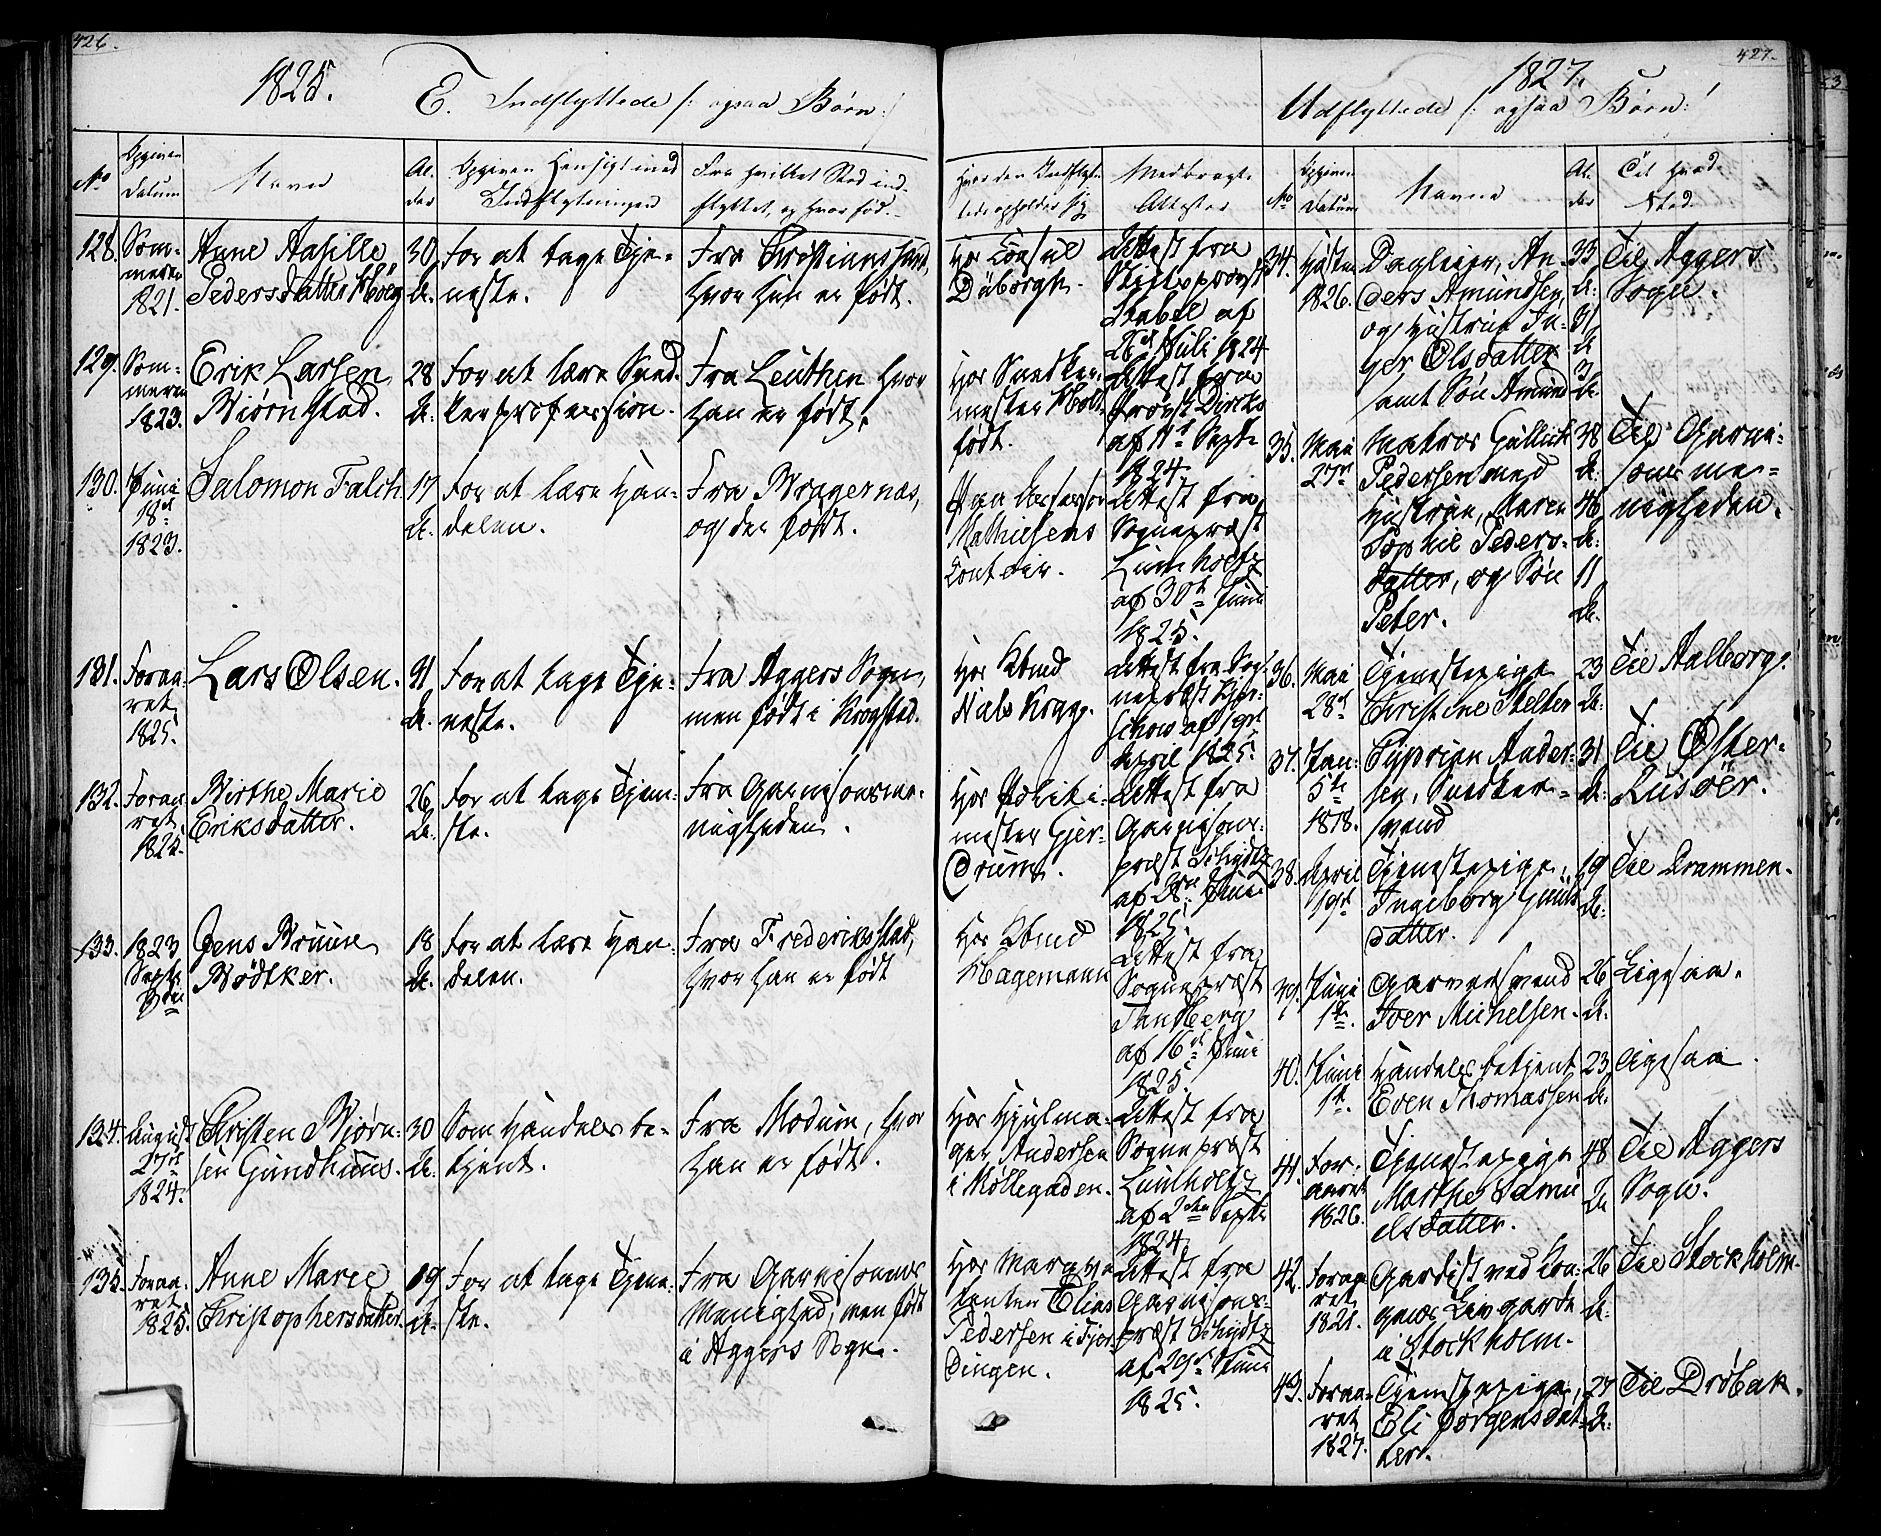 426.
1825.
E. Indflyttede /: ogsaa Børn :/
No
Opgiven Datum
Navne
Al-
der
Opgiven Hensigt med
Indflytningen
Fra hvilket Sted ind-
flyttet, og hvor fød.
Hvor den Indflyt-
tede opholder sig
Medbragte
Attester
128.
Som-
meren
1821.
Anne Aasille
Pedersdatter Høeg
30
A.
For at tage Tje-
neste.
Fra Christianssund,
hvor hun er født.
Hos Consul
Døborgh.
Attest fra
Stiftsprovst
Stabel af
28de Juli 1824
129.
Som-
meren
1823.
Erik Larsen
Biørnstad.
28
A.
For at lære Sned-
kerprofession.
Fra Leuthen hvor
han er født.
Hos Snedker-
mester
født.
Attest fra
Provst Dircks
af 11te Septr
1824.
130.
Juni
18de
1823.
Salomon Falch
17
A.
For at lære Han-
delen.
Fra Bragernæs,
og der født.
Paa Assessor
Mathiesens
Contoir.
Attest fra
Sognepræst
Lumholtz
af 30te Juni
1825.
131.
Foraa-
ret
1825.
Lars Olsen.
21
A.
For at tage Tje-
neste.
Fra Aggers Sogn,
men født i Krogstad.
Hos Kbmd
Niels Kragg.
Attest fra Sog-
nepræst
af 19de
April 1825.
132.
Foraa-
ret
1825.
Birthe Marie
Eriksdatter.
26
A.
For at tage Tjene-
ste.
Fra Garnisonsme-
nigheden.
Hos Politi-
mester Gjer-
drum.
Attest fra
Garnisons-
præst Schydtz
af 28de Juni
1825.
133.
1823
Septr
3die
Jens Bruun
Bødtker.
18
A.
For at lære Han-
delen.
Fra Frederiksstad,
hvor han er født
Hos Kbmd
Hagemann
Attest fra
Sognepræst
Tandberg
af 16de Juni
1825.
134.
August
27de
1824.
Christen Biørn-
sen Gundhuus.
30
A.
Som Handelsbe-
tjent.
Fra Modum, hvor
han er født.
Hos Hjulma-
ger Andersen
i Møllegaden.
Attest fra
Sognepræst
Lumholtz
af 2den Septr
1824.
135.
Foraa-
ret
1825.
Anne Marie
Christophersdatter.
19
A.
For at tage Tjene-
ste.
Fra Garnisonens
Menighed, men født
i Aggers Sogn.
Hos
Elias
Pedersen i Fjer-
dingen.
Attest fra
Garnisons-
præst Schydtz
af 29de Juni
1825.
427.
1827.
Udflyttede /: ogsaa Børn :/
No
Opgiven
Datum
Navne
Al-
der
Til hvad
Sted.
34.
Høsten
1826.
Dagleier, An-
ders Amundsen,
og Hustrue In-
ger Olsdatter
samt Søn Amund
33
A.
31
A.
3
A.
Til Aggers
Sogn.
35.
Mai
27de
Matros Gullich
Pedersen med
Hustrue, Maren
Sophie Peders-
datter, og Søn
Peter.
38
A.
46
A.
11
A.
Til Garni-
sons me-
nigheden.
36.
Mai
28de
Tjenestepige
Christine Stelter
23
A.
Til Aalborg.
37.
Jan-
5te
1818.
Cyprian Ander-
sen, Snedker-
svend
31
A.
Til Øster-
Riisøer.
38.
April
19de
Tjenestepige,
Ingeborg Guls-
datter.
19
A.
Til Drammen.
39.
Juni
1te.
Garversvend
Iver Michelsen.
26
A.
Ligesaa.
40.
Juni
1te.
Handelsbetjent
Even Thomassen
23
A.
Ligesaa.
41.
For-
aaret
1826.
Tjenestepige
Marthe Samu-
elsdatter.
48
A.
Til Aggers
Sogn.
42.
Foraa-
ret
1821.
Gardist ved Kon-
gens Livgarde
i Stockholm.
26
A.
Til Stockholm.
43.
Foraa-
ret
1827.
Tjenestepige,
Eli Jørgensdat-
ter.
27
A.
Til Drøbak.